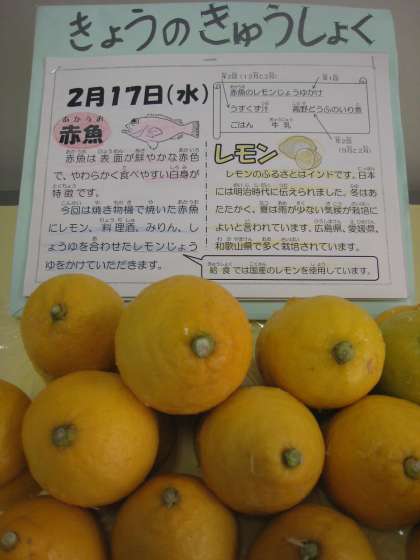 きょうのきゅうしょく
2月17日(水)
第2回(12月2日)
第1回
赤魚のレモンじょうゆがけ
うすくず汁 高野どうふのいり煮
ごはん 牛乳
第2回
(9月2日)
あかうお
赤魚
赤魚は表面が鮮やかな赤色
で、やわらかく食べやすい白身が
特徴です。
今回は焼き物機で焼いた赤魚
にレモン、料理酒、みりん、し
ょうゆを合わせたレモンじょう
ゆをかけていただきます。
レモン
レモンのふるさとはインドです。日本
には明治時代に伝えられました。冬はあ
たたかく、夏は雨が少ない気候が栽培に
よいと言われています。広島県、愛媛県、
和歌山県で多く栽培されています。
給食では国産のレモンを使用しています。